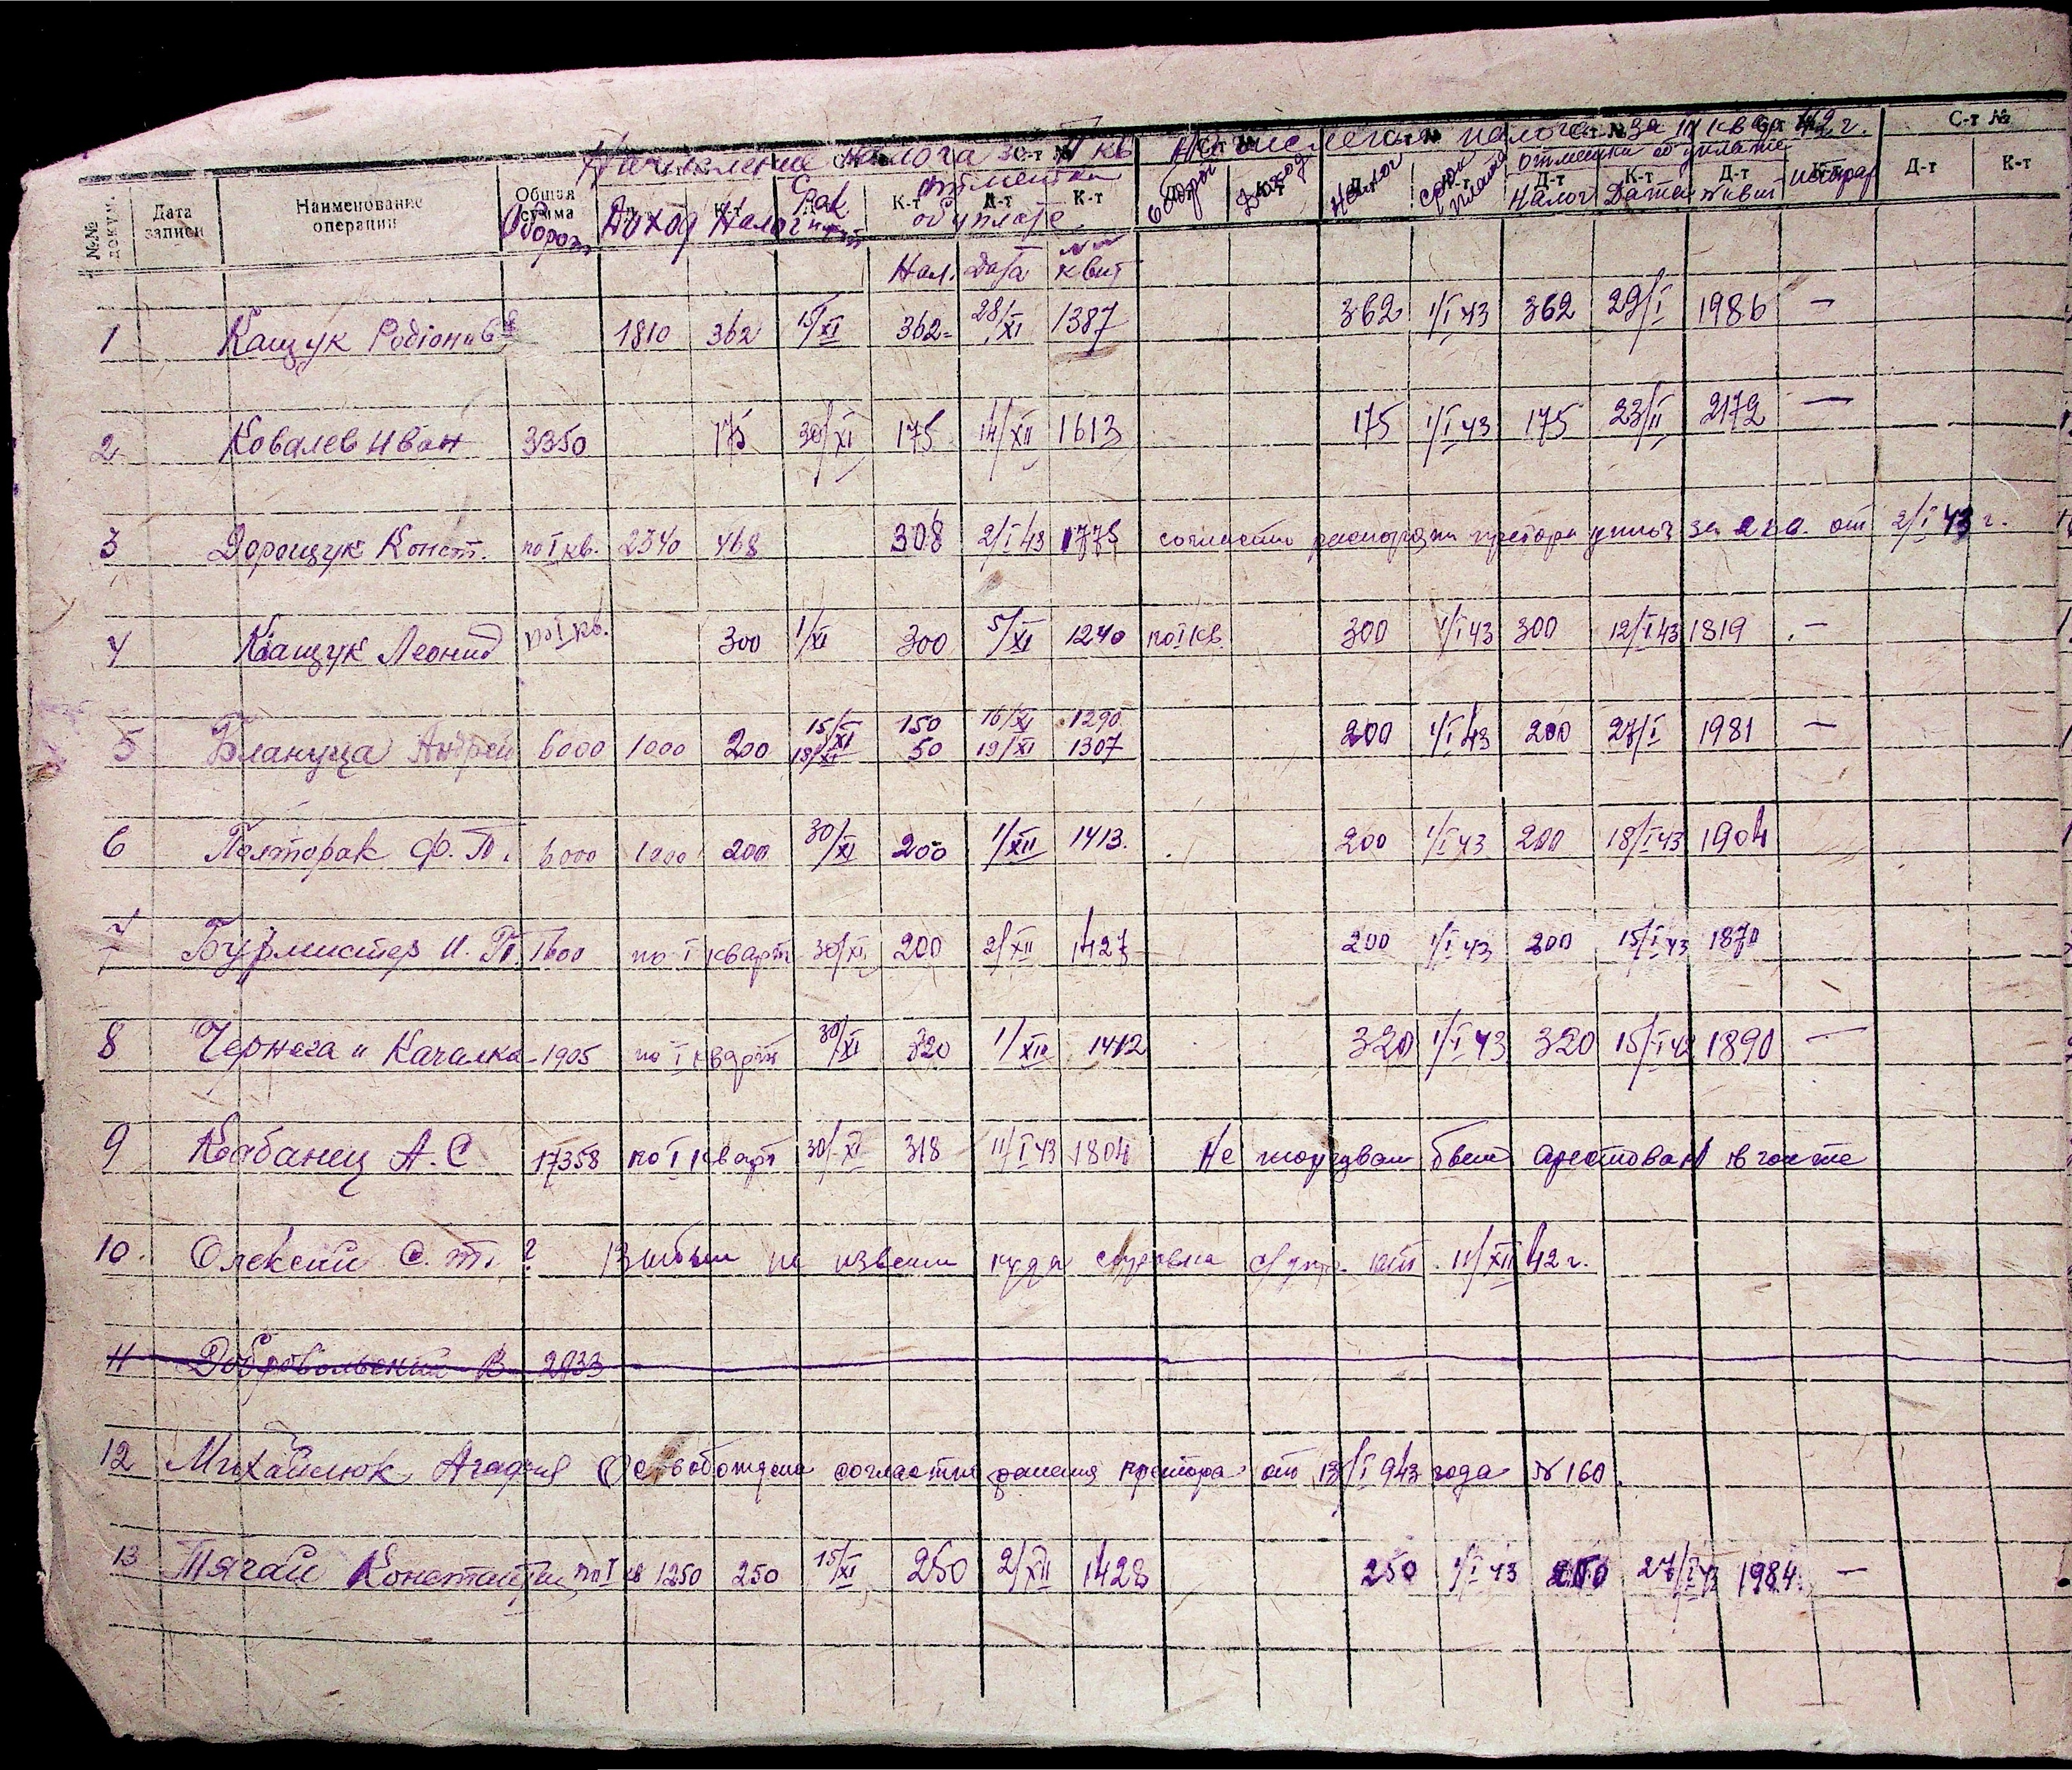 Начисление налога за II кв Начисления налога за III кварт 42 г.
№№ докум. Дата записи Наименование операции Общая сумма С-т № С-т № С-т № С-т № С-т № С-т №
Оборот Доход Налог отметки об уплате оборот Доход Налог срок отметки об уплате Налог Дата № квит
Д-т К-т
Нал. Дата № квит
1 Кащук Родіонів 1810 362 15/XI 362- 28/XI 1387 362 1/I 43 362 29/I 1986 —
2 Ковалев Иван 3350 175 30/XI 175 14/XII 1613 175 1/I 43 175 23/II 2172 —
3 Дорощук Конст. по I кв. 2340 468 308 2/I 43 1775 согласно претора за 2 кв. от 2/I 43 г.
4 Кащук Леонид по I кв. 300 1/XI 300 5/XI 1240 по I кв 300 1/I 43 300 12/I 43 1819 —
5 Блануца Андрей 6000 1000 200 15/XI 150 16/XI 1290 200 1/I 43 200 27/I 1981 —
18/XI 50 19/XI 1307
6 Полторак Ф. П. 6000 1200 200 30/XI 200 1/XII 1413. 200 1/I 43 200 18/I 43 1904
7 Бурмистер И. П. 1600 по I кварт 30/XI 200 2/XII 1427 200 1/I 43 200 15/I 43 1870
8 Чернега и Качалка 1905 по I кварт 30/XI 320 1/XII 1412 320 1/I 43 320 15/I 43 1890 —
9 Кабанец А. С 17358 по I кварт 30/XI 318 11/I 43 1804 Не торговал был арестован
10. Олексии С. т. ? Выбыл не извесн куда справка с/упр. 11/XII 42 г.
11 Добровольский В 2033
12 Михайлюк Агафия Освобождена согласно решения претора от 13/I 943 года № 160.
13 Тягай Константин по I кв 1250 250 15/XI 250 2/XII 1428 250 1/I 43 250 27/I 43 1984. —